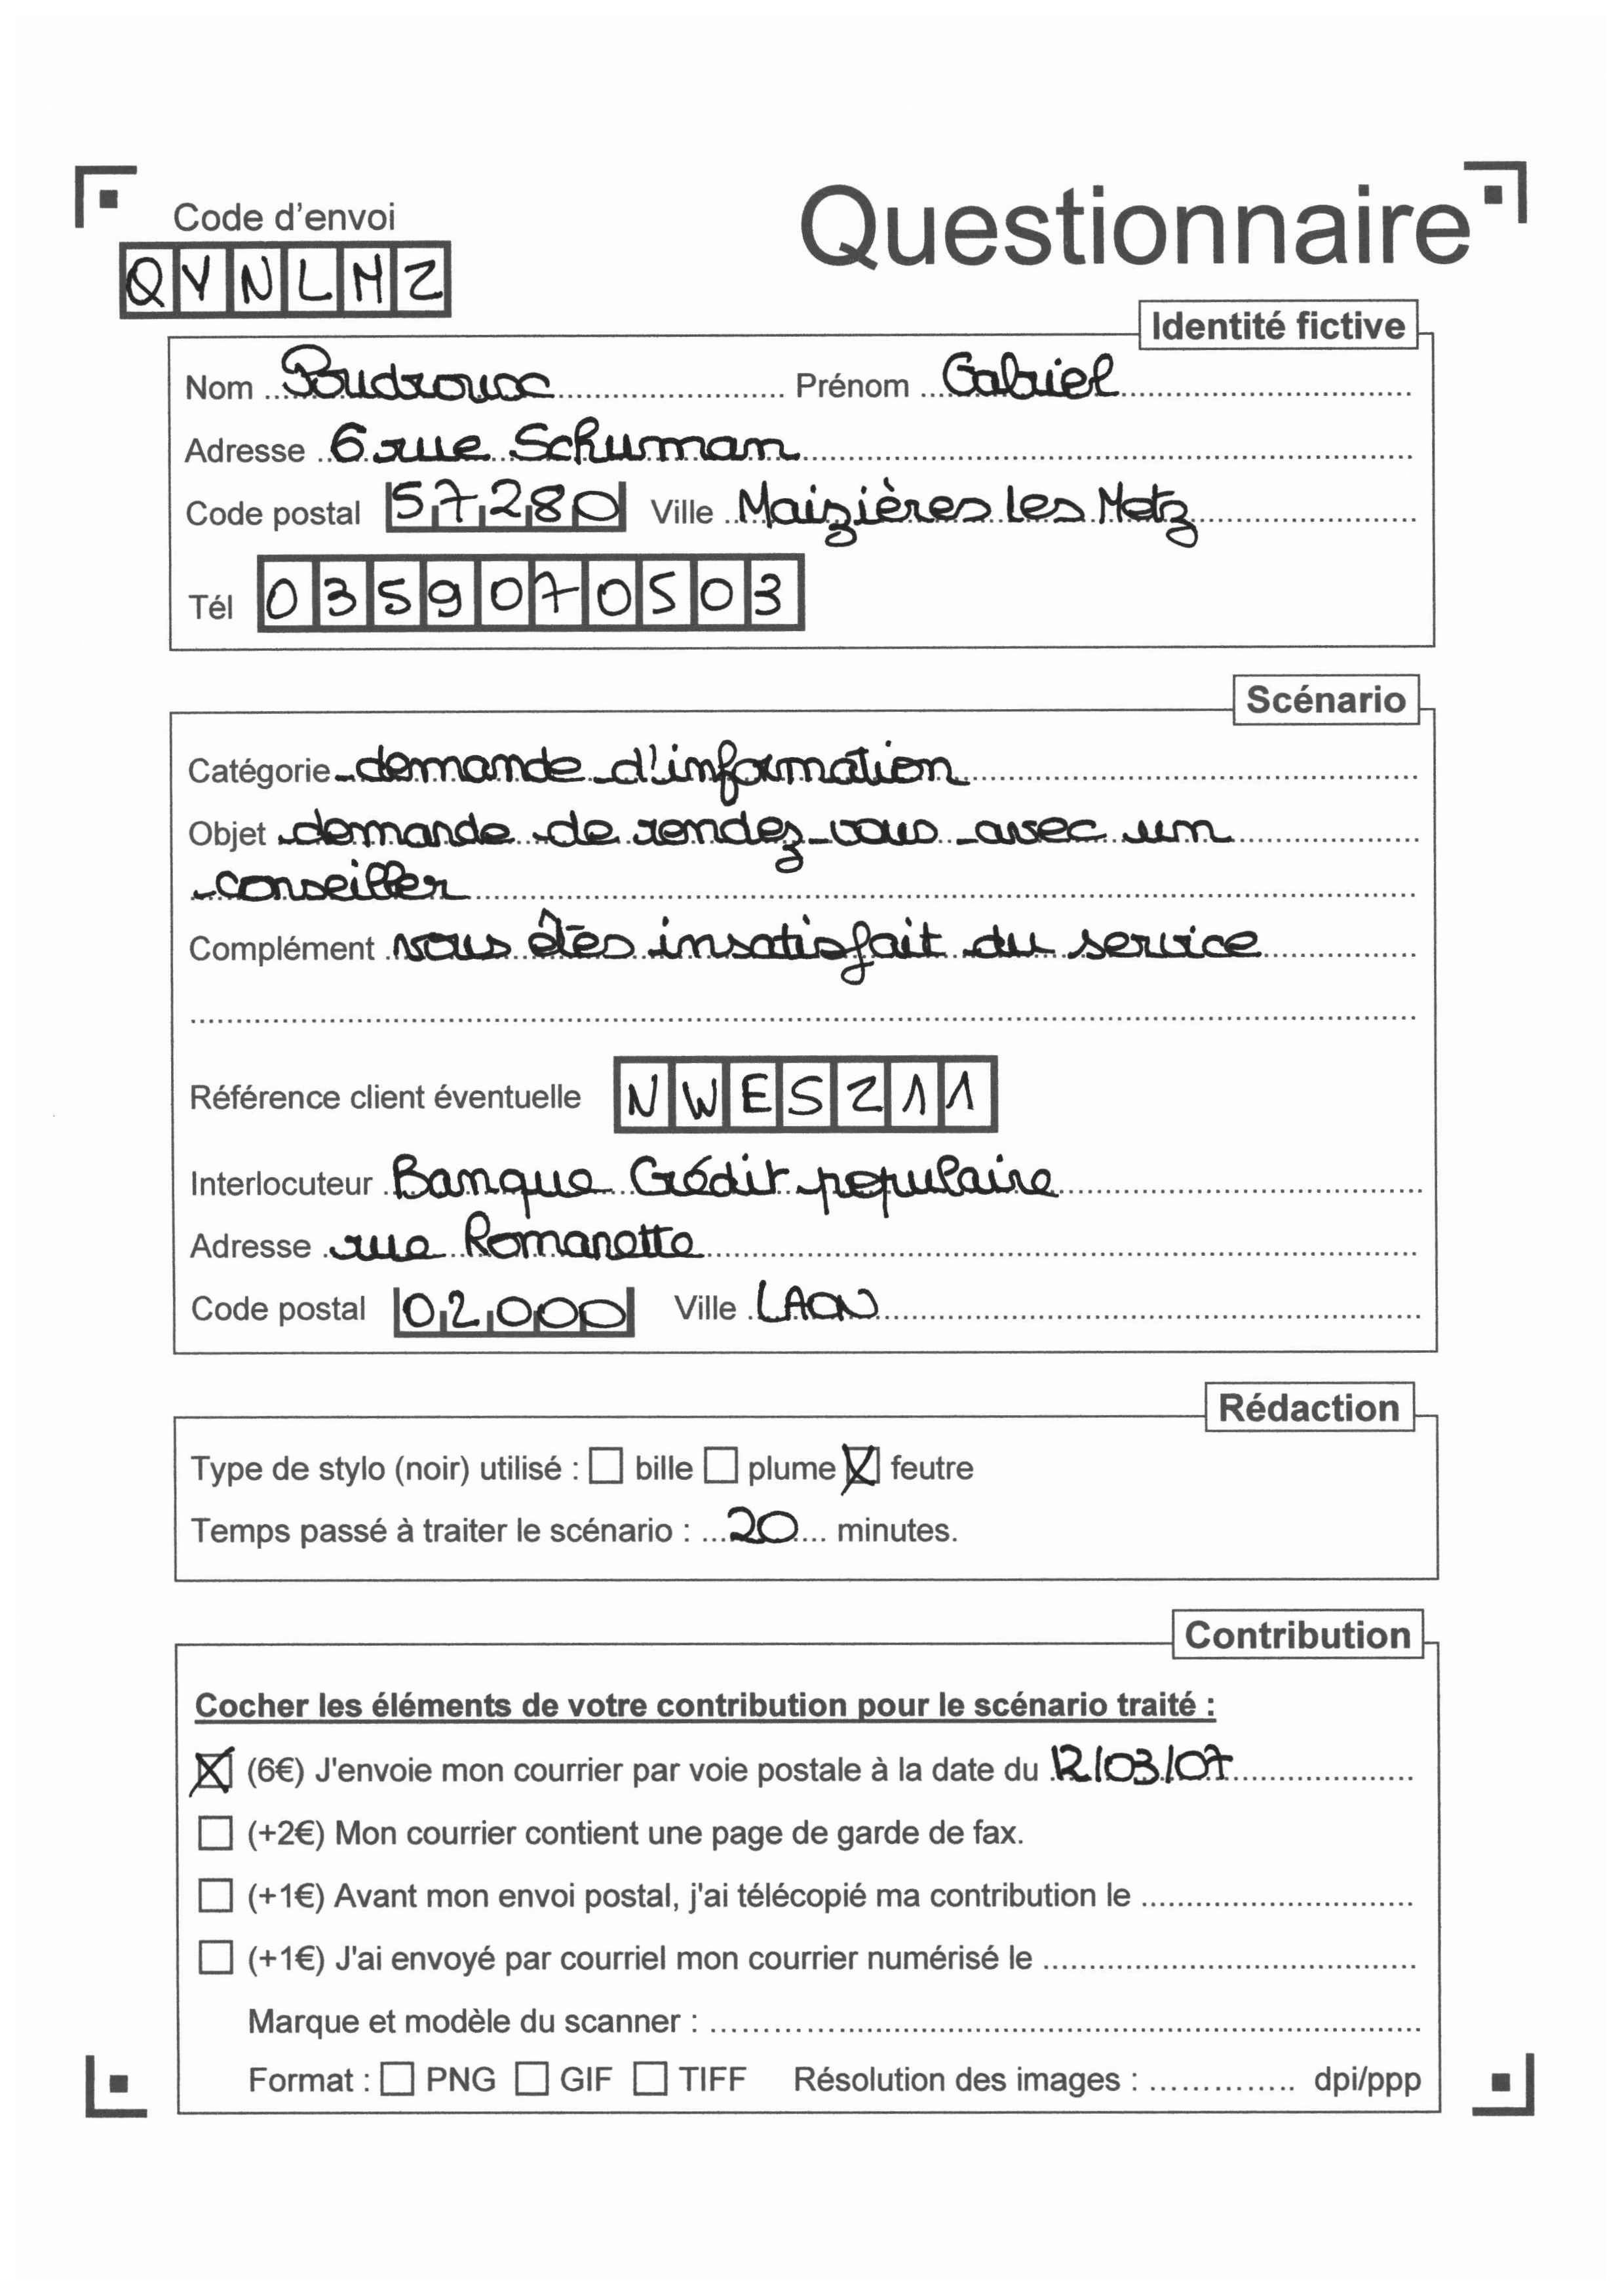 Questionnaire
Code d'envoi
QVNLMZ
Identité fictive
Nom Poudroux Prénom Gabriel
Adresse 6 rue Schuman
Code postal 57280 Ville Maizières les Metz
Tél 0359070503
Scénario
Catégorie demande d'information
Objet demande de rendez-vous avec un
conseiller
Complément vous êtes insatisfait du service
Référence client éventuelle NWESZ11
Interlocuteur Banque Crédit populaire
Adresse rue Romanette
Code postal 02000 Ville LAON
Rédaction
Type de stylo (noir) utilisé : bille plume feutre
Temps passé à traiter le scénario : 20 minutes.
Contribution
Cocher les éléments de votre contribution pour le scénario traité :
(6€) J'envoie mon courrier par voie postale à la date du 12/03/07
(+2€) Mon courrier contient une page de garde de fax.
(+1€) Avant mon envoi postal, j'ai télécopié ma contribution le
(+1€) J'ai envoyé par courriel mon courrier numérisé le
Marque et modèle du scanner :
Format : PNG GIF TIFF Résolution des images : dpi/ppp